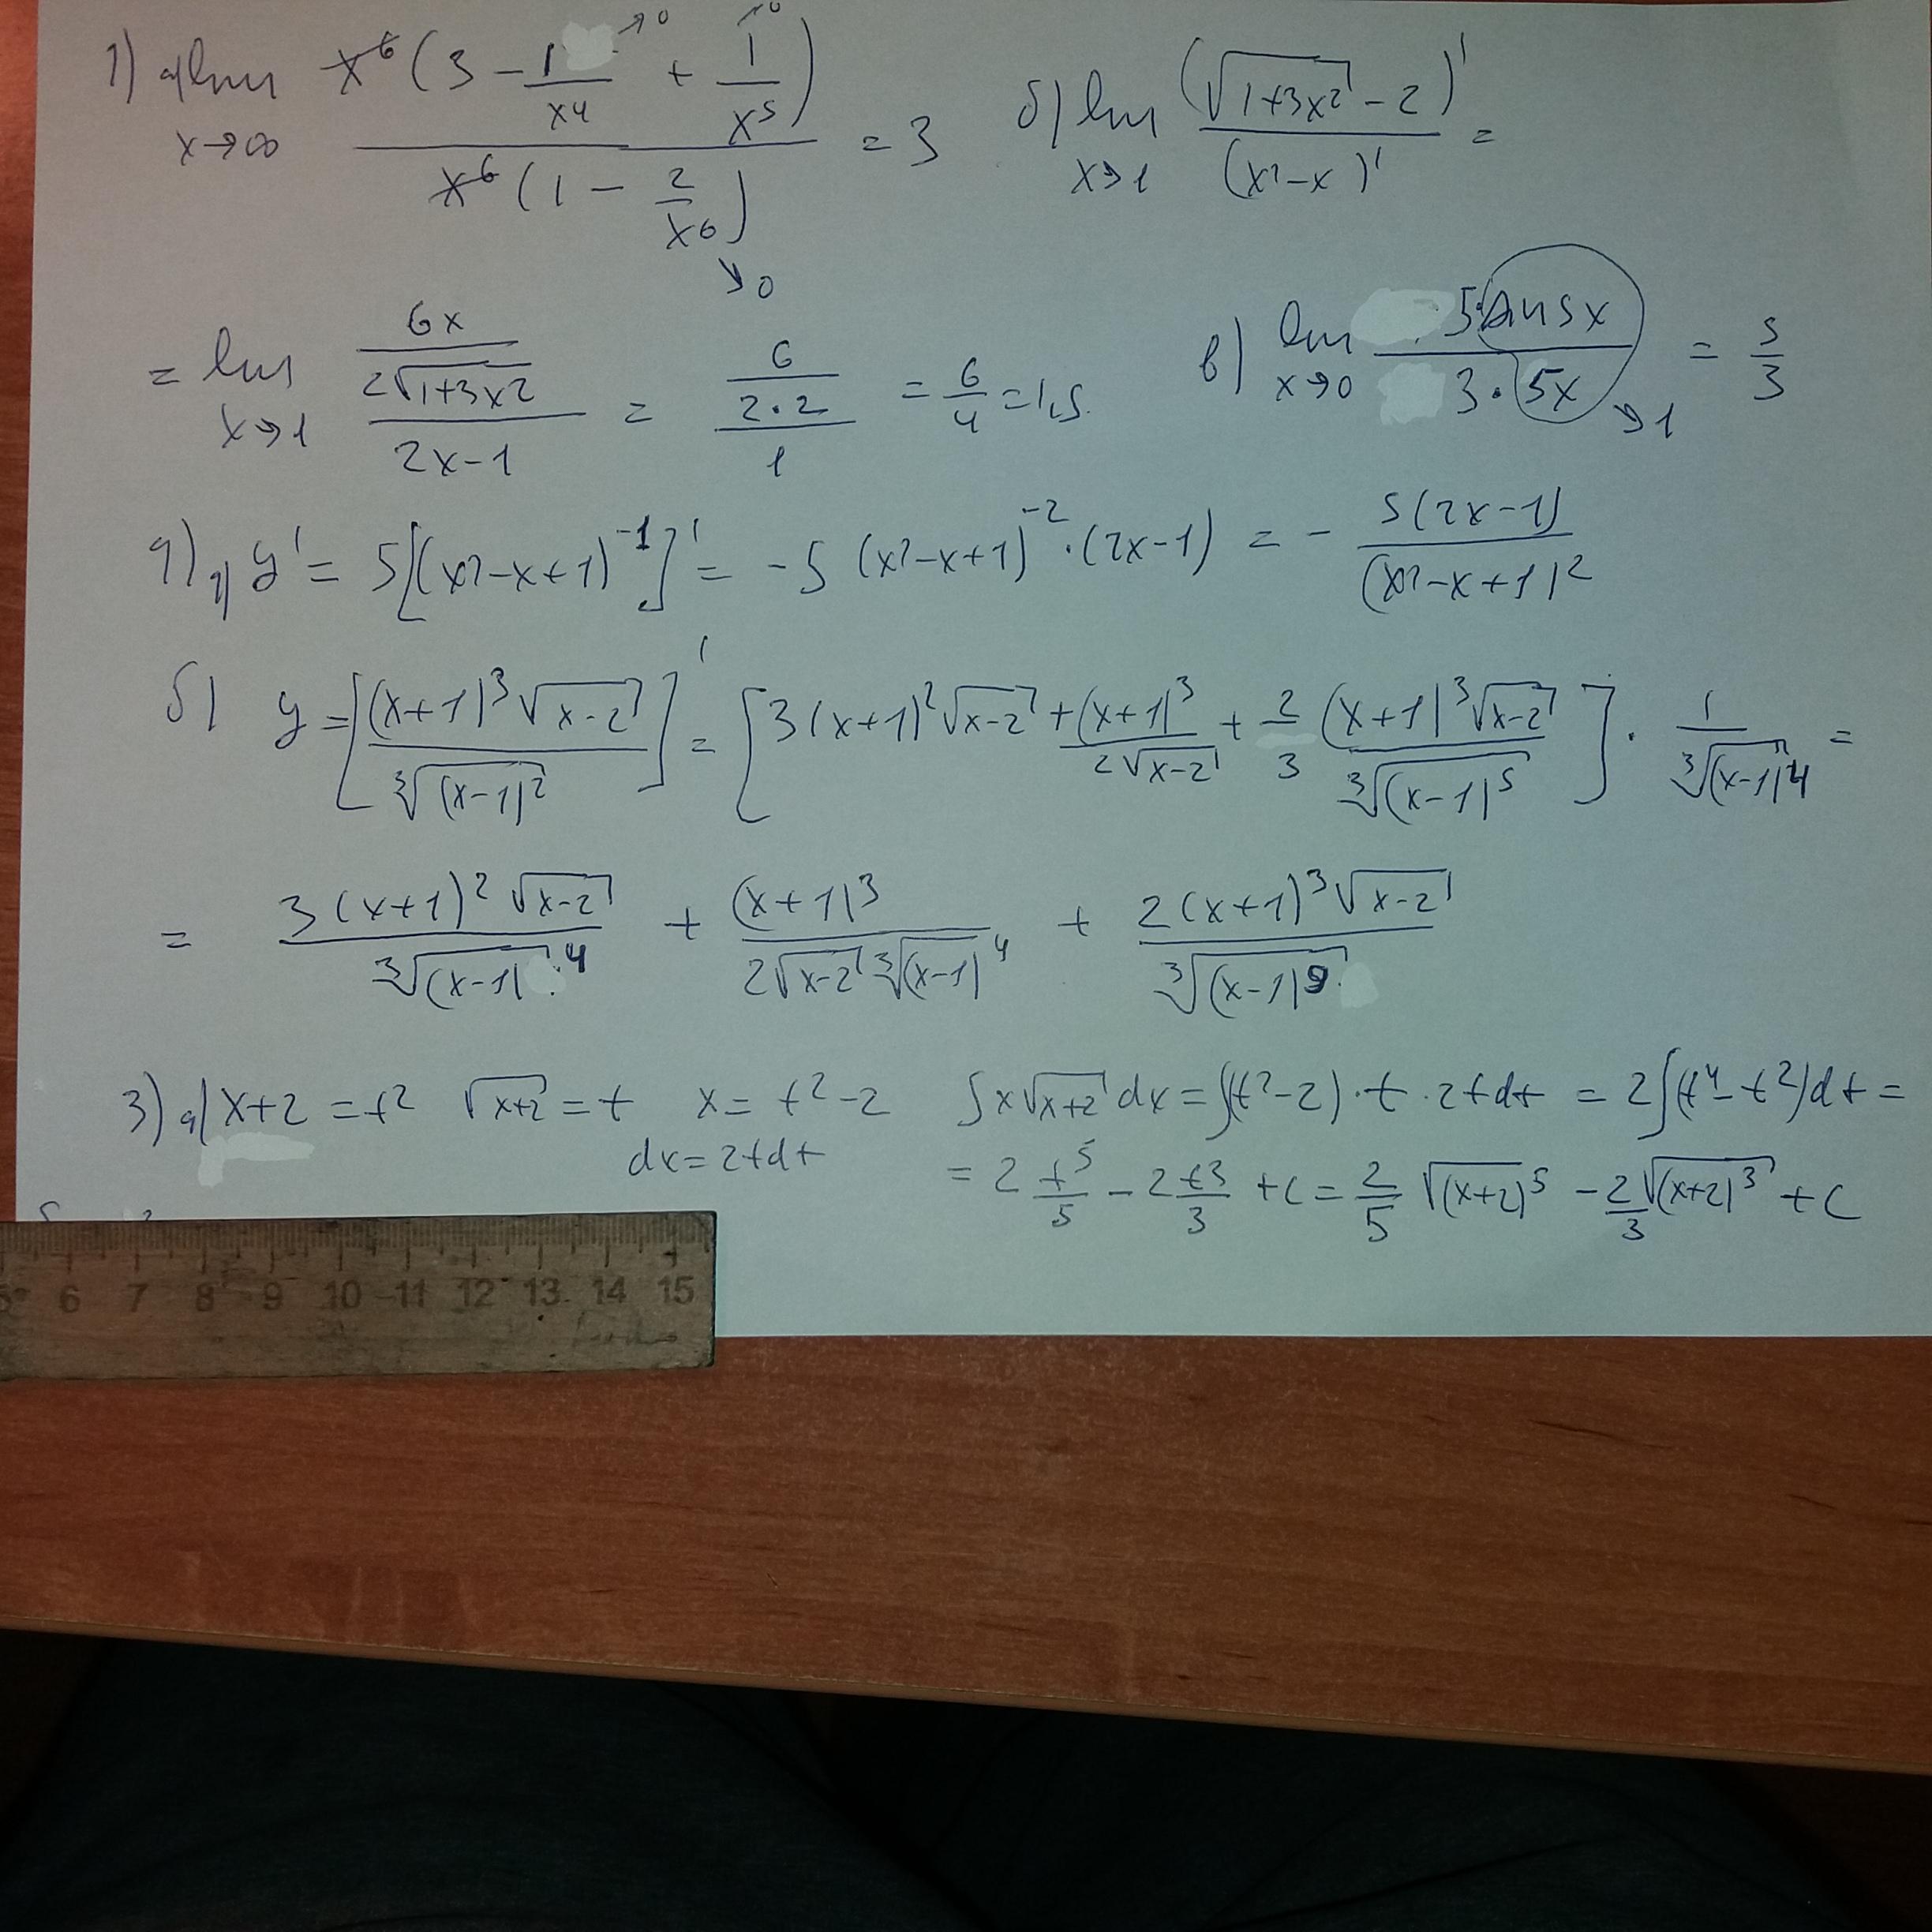 1) а) lim x→∞ x⁶(3 − 1/x⁴ →0 + 1/x⁵ →0) / x⁶(1 − 2/x⁶ →0) = 3 б) lim x→1 (√(1+3x²) − 2)' / (x² − x)' =
= lim x→1 (6x / 2√(1+3x²)) / (2x−1) = (6 / 2·2) / 1 = 6/4 = 1,5. в) lim x→0 5·sin5x / 3·5x →1 = 5/3
y' = 5[(x²−x+1)⁻¹]' = −5(x²−x+1)⁻²·(2x−1) = − 5(2x−1) / (x²−x+1)²
б) y = [(x+1)³√(x−2) / ∛(x−1)²]' = [3(x+1)²√(x−2) + (x+1)³ / 2√(x−2) + 2/3 (x+1)³√(x−2) / ∛(x−1)⁵] · 1 / ∛(x−1)⁴ =
= 3(x+1)²√(x−2) / ∛(x−1)⁴ + (x+1)³ / 2√(x−2) ∛(x−1)⁴ + 2(x+1)³√(x−2) / ∛(x−1)⁹
3) а) x+2 = t² √(x+2) = t x = t²−2 ∫x√(x+2) dx = ∫(t²−2)·t·2tdt = 2∫(t⁴−t²)dt =
dx = 2tdt = 2 t⁵/5 − 2 t³/3 + c = 2/5 √(x+2)⁵ − 2/3 √(x+2)³ + C
6 7 8 9 10 11 12 13 14 15